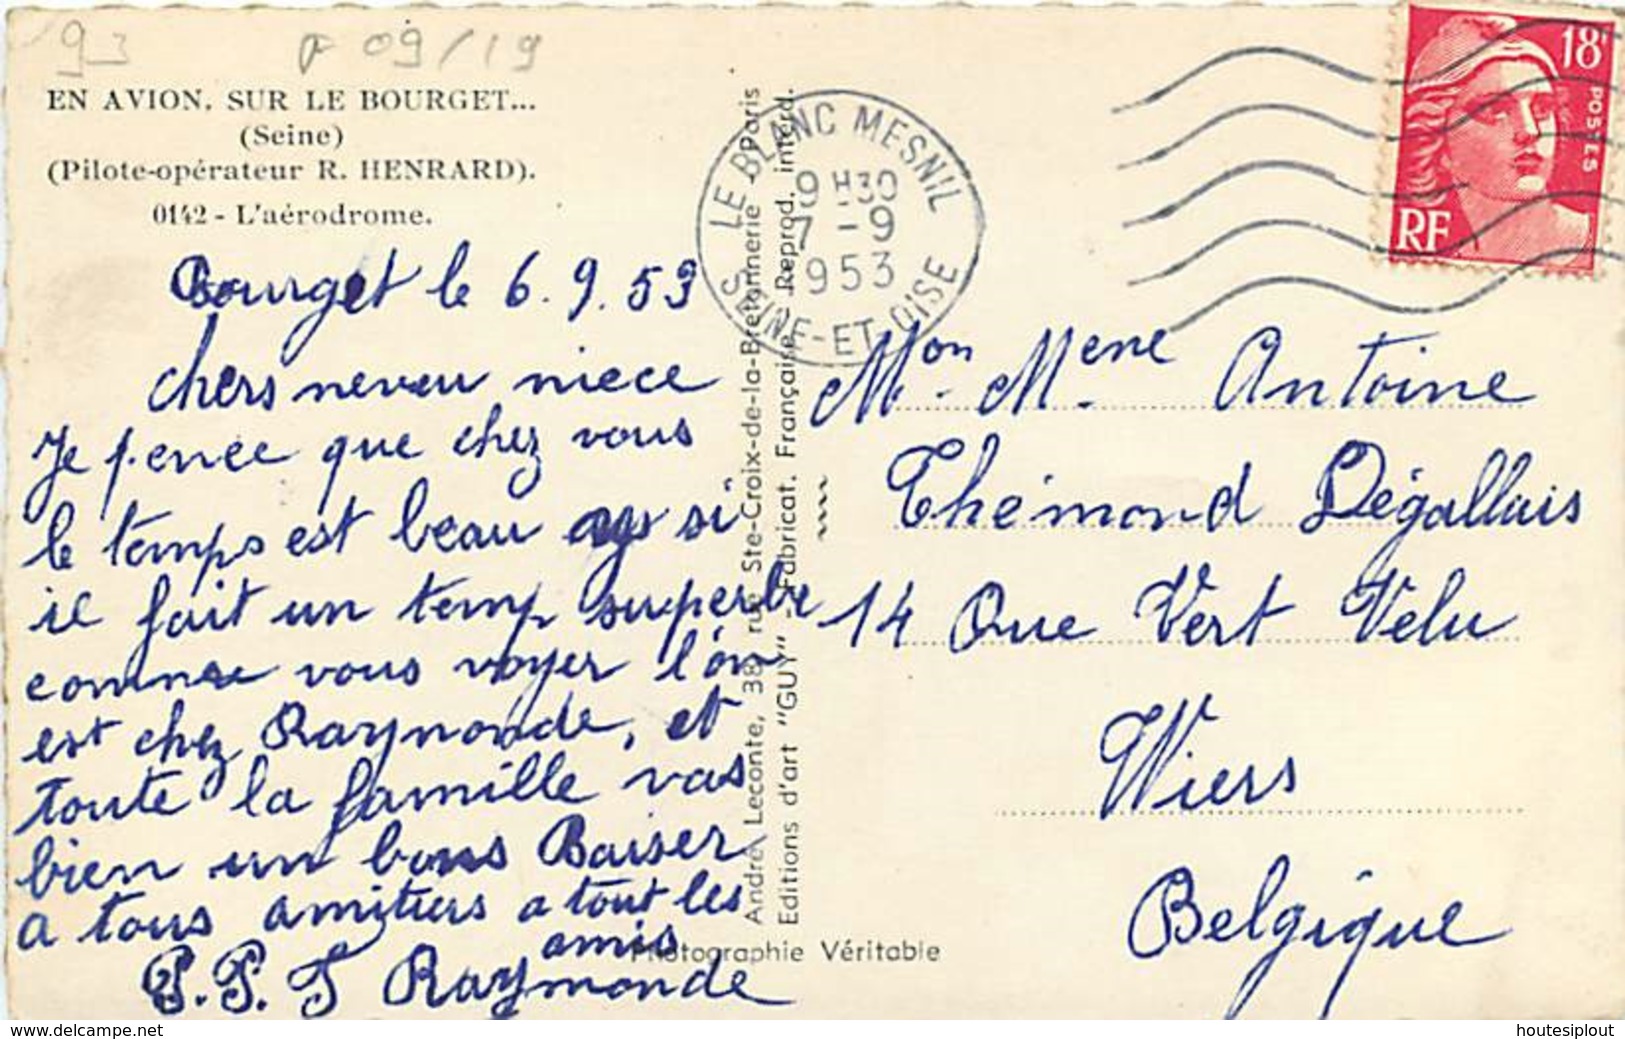 93
09/19
EN AVION. SUR LE BOURGET...
(Seine)
(Pilote-opérateur R. HENRARD).
0142 - L'aérodrome.
Bourget le 6.9.53
chers neveu niece
Je pence que chez vous
le temps est beau si
il fait un temp superbe
comme vous voyer l'on
est chez Raymonde, et
toute la famille vas
bien un bons Baiser
a tous amitiers a tout les
amis
P.P.S Raymonde
André Leconte, 38 rue Ste-Croix-de-la-Bretonnerie - Paris
Editions d'art "GUY" - Fabricat. Française. Reprod. interd.
Photographie Véritable
LE BLANC MESNIL
9H30
7 - 9
1953
SEINE-ET-OISE
18F
POSTES
RF
Mon. Meme. Antoine
Thémond Dégallais
14 Rue Vert Velu
Wiers
Belgique
https://www.delcampe.net
houtesiplout